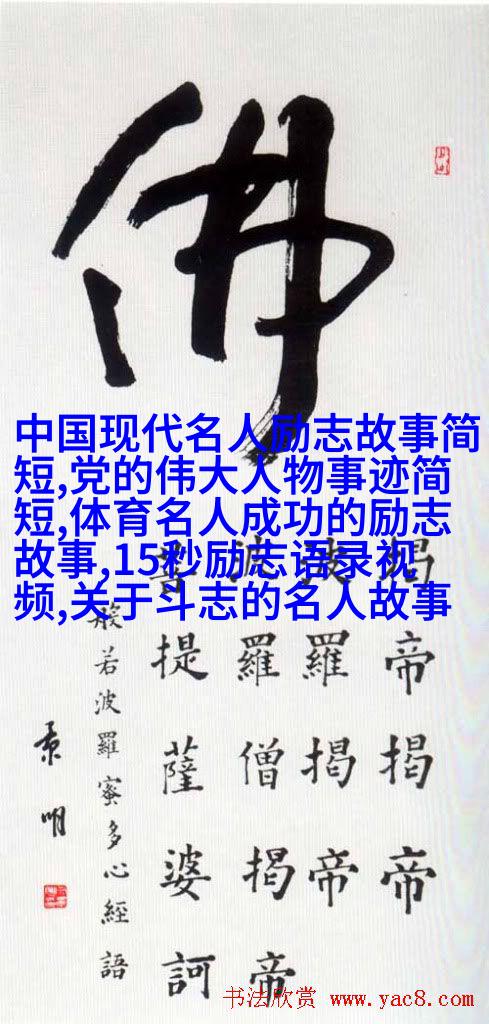 佛
中国现代名人励志故事简
短,党的伟大人物事迹简
短,体育名人成功的励志
故事,15秒励志语录视
频,关于斗志的名人故事
揭帝揭帝
波羅揭帝
波羅僧揭帝
菩提薩婆訶
般若波羅蜜多心經語
书法欣赏 www.yac8.com